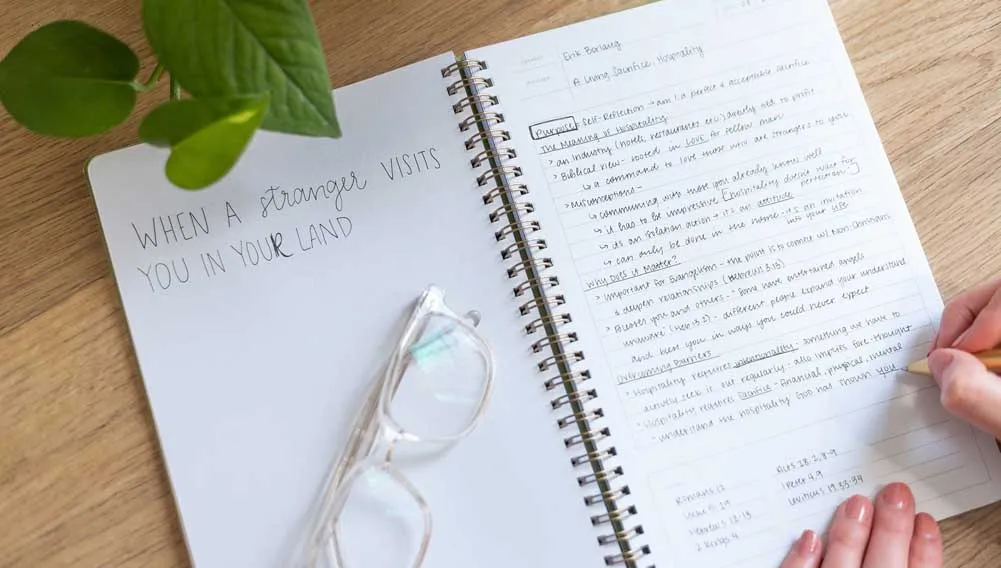 WHEN A stranger VISITS
YOU IN YOUR LAND
Erik Boriaug
A Living Sacrifice: Hospitality
Purpose: Self-Reflection → am I a perfect & acceptable sacrifice
The Meaning of Hospitality
> an industry (hotels, restaurants etc.) directly old to profit
> Biblical view - rooted in LOVE for fellow man
↳ a command to love those who are strangers to you
> misconceptions -
↳ communing with those you already know well
↳ it has to be impressive [hospitality doesn't wait for perfection]
↳ its an isolation action → it's an attitude
↳ can only be done in the home - it's an invitation into your life
Why Does it Matter?
> Important for Evangelism - the point is to connect w/ non Christians
& deepen relationships (Hebrews 3:13)
> Blesses you and others - "Some have entertained angels
unaware" (Heb 13:2) - different people expand your understand
and bless you in ways you could never expect
Overcoming Barriers
> Hospitality requires intentionality - something we have to
actively seek it out regularly - also implies fore-thought
- Hospitality requires Sacrifice - financial, physical, mental
- understand the hospitality God has shown you
Romans 12
Hebrews 12-13
2 Kings 4
Acts 18:2, 8-9
1 Peter 4:9
Leviticus 19:33-34